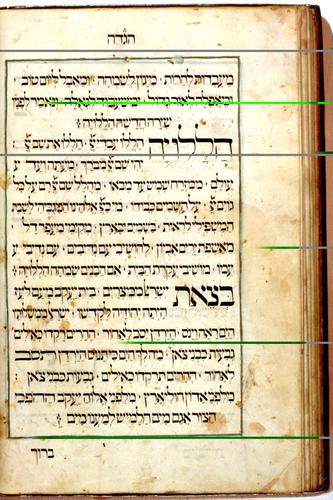 הגדה
מעבדות לחרות · מיגון לשמחה · ומאבל ליום טוב ·
ומאפלה לאור גדול · ומשעבוד לגאולה · ונאמר לפניו
שירה חדשה הללויה :
הללויה הללו עבדי יי · הללו את שם יי ·
יהי שם יי מברך · מעתה ועד ע
עולם · ממזרח שמש עד מבאו · מהלל שם יי רם על כל
גוים יי · על השמים כבודו · מי כיי אלהינו המגביהי לשבת
המשפילי לראות · בשמים ובארץ · מקימי מעפר דל ·
מאשפת ירים אביון · להושיבי עם נדיבים · עם נדיבי ע
עמו · מושיבי עקרת הבית · אם הבנים שמחה הללויה :
בצאת ישראל ממצרים · בית יעקב מעם לועז
היתה יהודה לקדשו · ישראל ממשלותיו
הים ראה וינס · הירדן יסב לאחור · ההרים רקדו כאילים
גבעות כבני צאן · מה לך הים כי תנוס הירדן תסב
לאחור · ההרים תרקדו כאילים · גבעות כבני צאן ·
מלפני אדון חולי ארץ · מלפני אלוה יעקב ההופכי
הצור אגם מים חלמיש למעינו מים :
ברוך